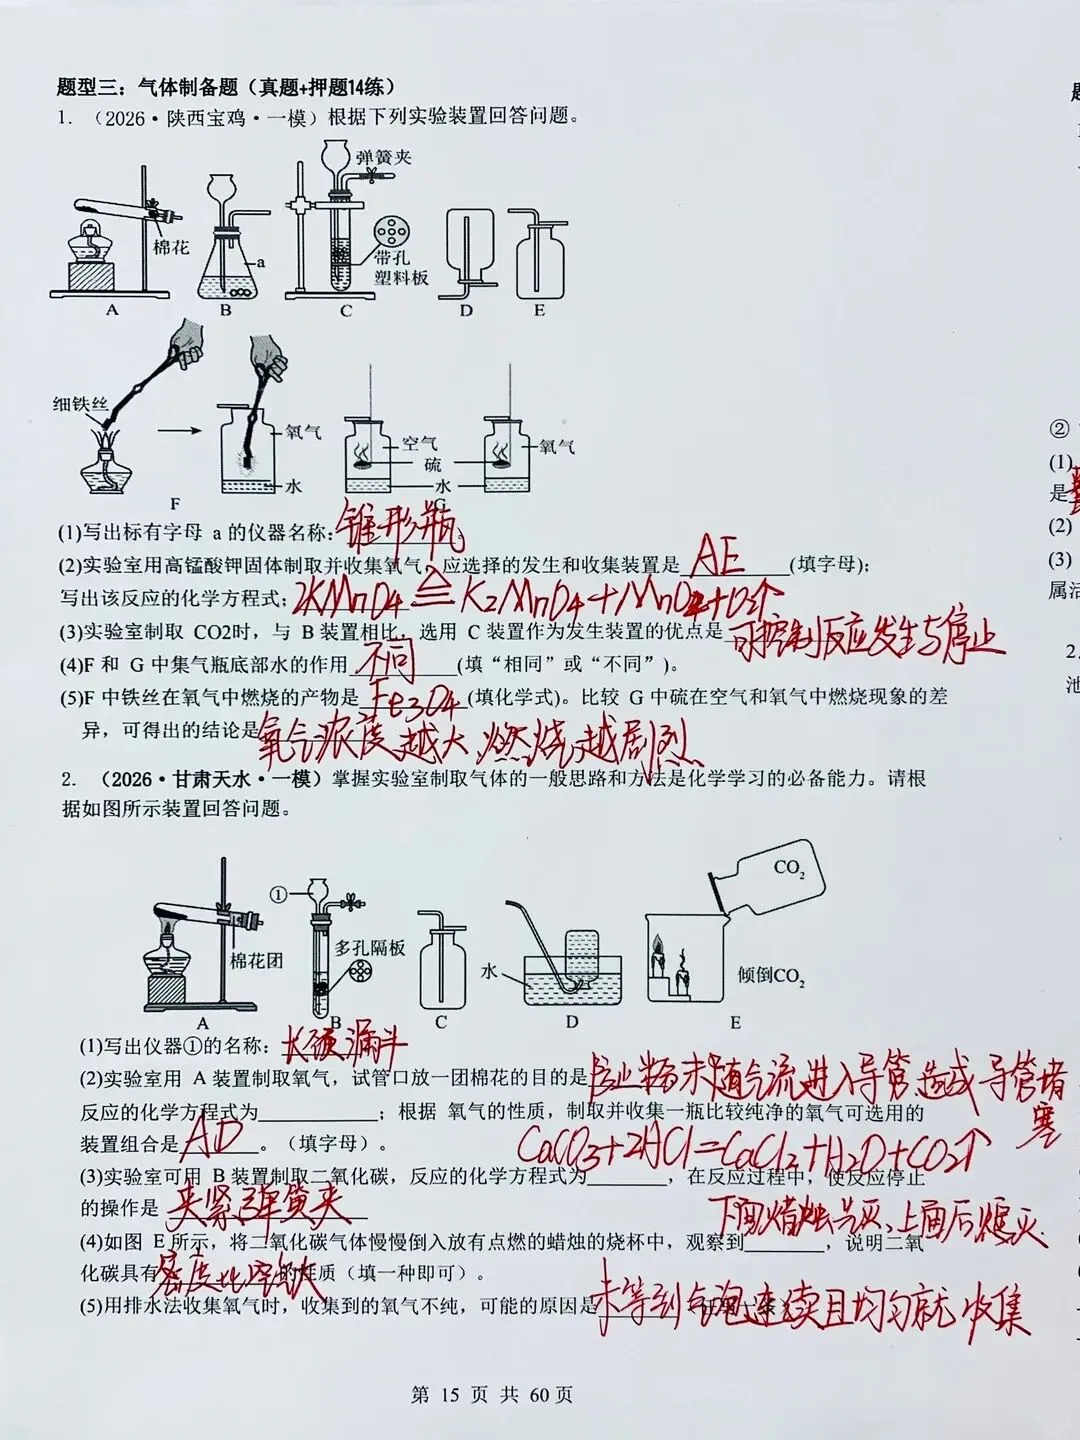 题型三：气体制备题（真题+押题14练）
1. （2026·陕西宝鸡·一模）根据下列实验装置回答问题。
弹簧夹
棉花
a
带孔
塑料板
A B C D E
细铁丝
氧气
水
空气
硫
水
氧气
F G
(1)写出标有字母 a 的仪器名称:锥形瓶。
(2)实验室用高锰酸钾固体制取并收集氧气，应选择的发生和收集装置是 AE (填字母);
写出该反应的化学方程式; 2KMnO4 △ K2MnO4+MnO2+O2↑
(3)实验室制取 CO2时，与 B 装置相比，选用 C 装置作为发生装置的优点是 可控制反应发生与停止
(4)F 和 G 中集气瓶底部水的作用 不同 (填“相同”或“不同”)。
(5)F 中铁丝在氧气中燃烧的产物是 Fe3O4 (填化学式)。比较 G 中硫在空气和氧气中燃烧现象的差
异，可得出的结论是 氧气浓度越大,燃烧越剧烈
2. （2026·甘肃天水·一模）掌握实验室制取气体的一般思路和方法是化学学习的必备能力。请根
据如图所示装置回答问题。
①
棉花团
多孔隔板
水
CO2
倾倒CO2
A B C D E
(1)写出仪器①的名称: 长颈漏斗
(2)实验室用 A 装置制取氧气，试管口放一团棉花的目的是 防止粉末随气流进入导管,造成导管堵塞
反应的化学方程式为 ；根据 氧气的性质，制取并收集一瓶比较纯净的氧气可选用的
装置组合是 AD 。（填字母）。
CaCO3+2HCl=CaCl2+H2O+CO2↑
(3)实验室可用 B 装置制取二氧化碳，反应的化学方程式为 ，在反应过程中，使反应停止
的操作是 夹紧弹簧夹
下面蜡烛先灭、上面后熄灭.
(4)如图 E所示，将二氧化碳气体慢慢倒入放有点燃的蜡烛的烧杯中，观察到 ，说明二氧
化碳具有 密度比空气大 的性质（填一种即可）。
(5)用排水法收集氧气时，收集到的氧气不纯，可能的原因是 未等到气泡连续且均匀就收集
第 15 页 共 60 页
题
②
(1)
是
(2)
(3)
属活
2.
池